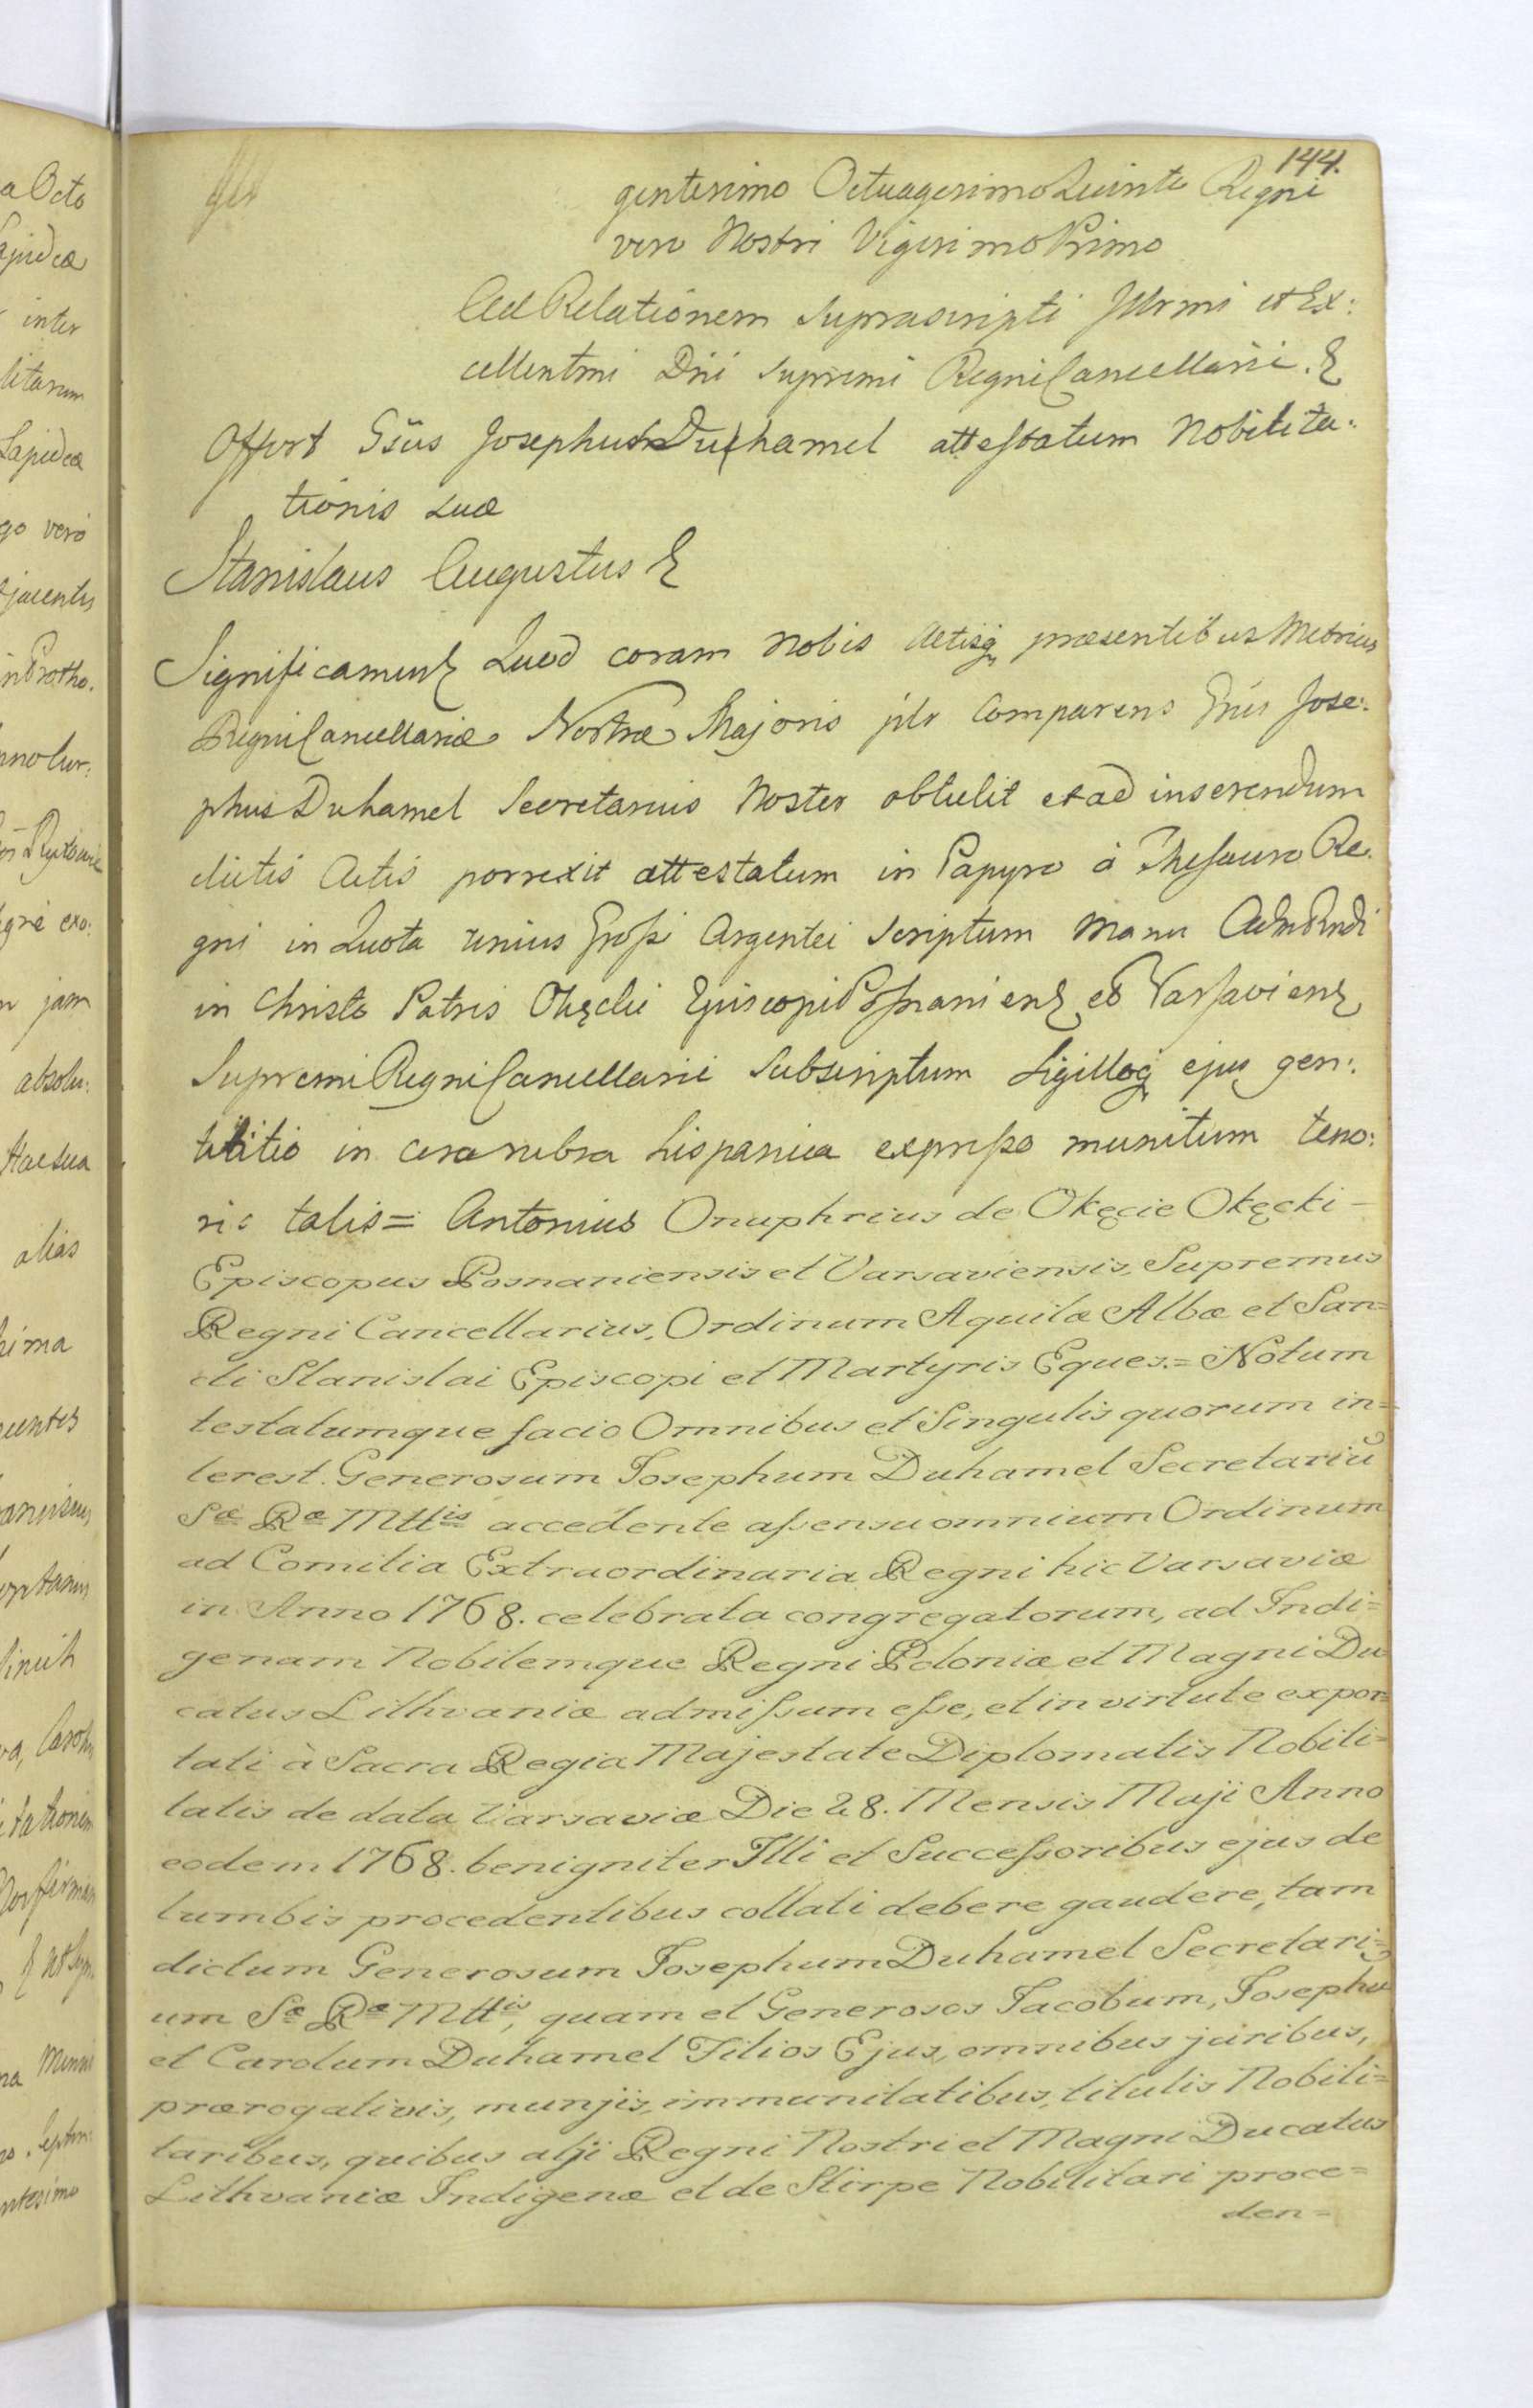 144.
gentesimo Octuagesimo Quinto Regni
vero Nostri Vigesimo Primo
Ad Relationem suprascripti Jllrmi et Ex:
cellentmi Dni supremi Regni Cancellarii. &
Offert Gsus Josephus Duhamel attestatum Nobilita:
tionis suæ
Stanislaus Augustus &
Significamus Quod coram Nobis Actisq præsentibus Metrices
Regni Cancellariæ Nostræ Majoris plr Comparens Gnus Jose:
phus Duhamel Secretarius Noster obtulit et ad inserendum
dictis Actis porrexit attestatum in Papyro à Thesauro Re
gni in Quota unius Grossi Argentei scriptum Manu Adm Rndi
in Christo Patris Okęcki Episcopi Posnaniens et Varsaviens
Supremi Regni Cancellarii Subscriptum Sigilloq ejus gen:
tilitio in cera rubra hispanica expresso munitum teno:
ris talis = Antonius Onuphrius de Okęcie Okęcki –
Episcopus Posnaniensis et Varsaviensis, Supremus
Regni Cancellarius, Ordinum Aquilæ Albæ et San=
cti Stanislai Episcopi et Martyris Eques. = Notum
testatumque facio Omnibus et Singulis quorum in=
terest. Generosum Josephum Duhamel Secretariū
Sæ Ræ Mttis accedente assensu omnium Ordinum
ad Comitia Extraordinaria Regni hic Varsaviæ
in Anno 1768. celebrata congregatorum, ad Indi=
genam Nobilemque Regni Poloniæ et Magni Du
catus Lithvaniæ admissum esse, et in virtute expor=
tati à Sacra Regia Majestate Diplomatis Nobili=
tatis de data Varsaviæ Die 28. Mensis Maji Anno
eodem 1768. benigniter Illi et Successoribus ejus de
lumbis procedentibus collati debere gaudere, tam
dictum Generosum Josephum Duhamel Secretari=
um Sæ Ræ Mttis, quam et Generosos Jacobum, Josephu
et Carolum Duhamel Filios Ejus, omnibus juribus,
prærogativis, munijs, immunitatibus, titulis Nobili=
taribus, quibus alji Regni Nostri et Magni Ducatus
Lithvaniæ Indigenæ et de Stirpe Nobilitari proce=
den=